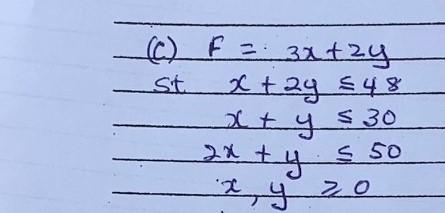 (C) F = 3x+2y
st x + 2y ≤ 48
x + y ≤ 30
2x + y ≤ 50
x, y ≥ 0